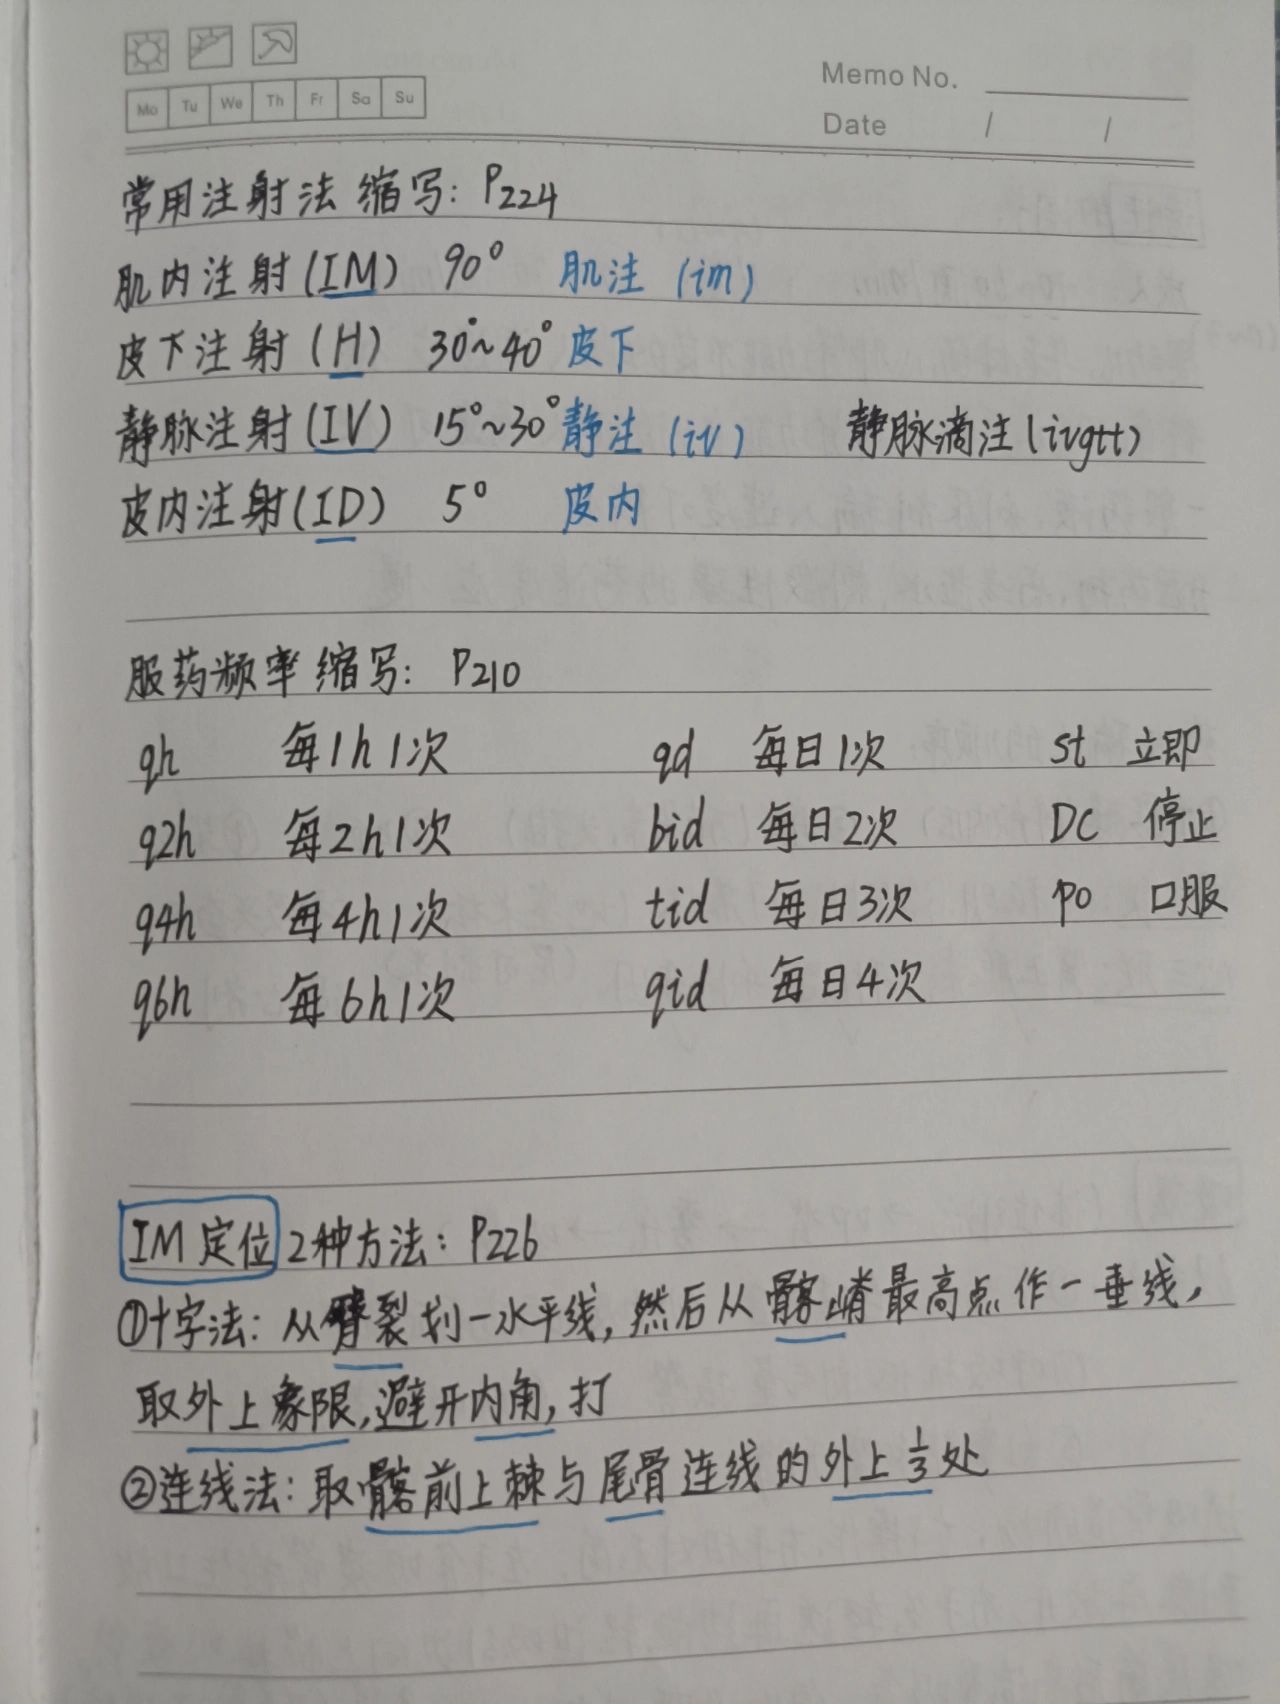 Mo Tu We Th Fr Sa Su
Memo No.
Date / /
常用注射法 缩写: P224
肌内注射(IM) 90° 肌注 (im)
皮下注射(H) 30°~40° 皮下
静脉注射(IV) 15°~30° 静注 (iv) 静脉滴注(ivgtt)
皮内注射(ID) 5° 皮内
服药频率缩写: P210
qh 每1h1次 qd 每日1次 st 立即
q2h 每2h1次 bid 每日2次 DC 停止
q4h 每4h1次 tid 每日3次 po 口服
q6h 每6h1次 qid 每日4次
IM 定位 2种方法: P226
①十字法: 从臀裂划一水平线, 然后从髂嵴最高点作一垂线,
取外上象限,避开内角,打
②连线法: 取髂前上棘与尾骨连线的外上1/3处